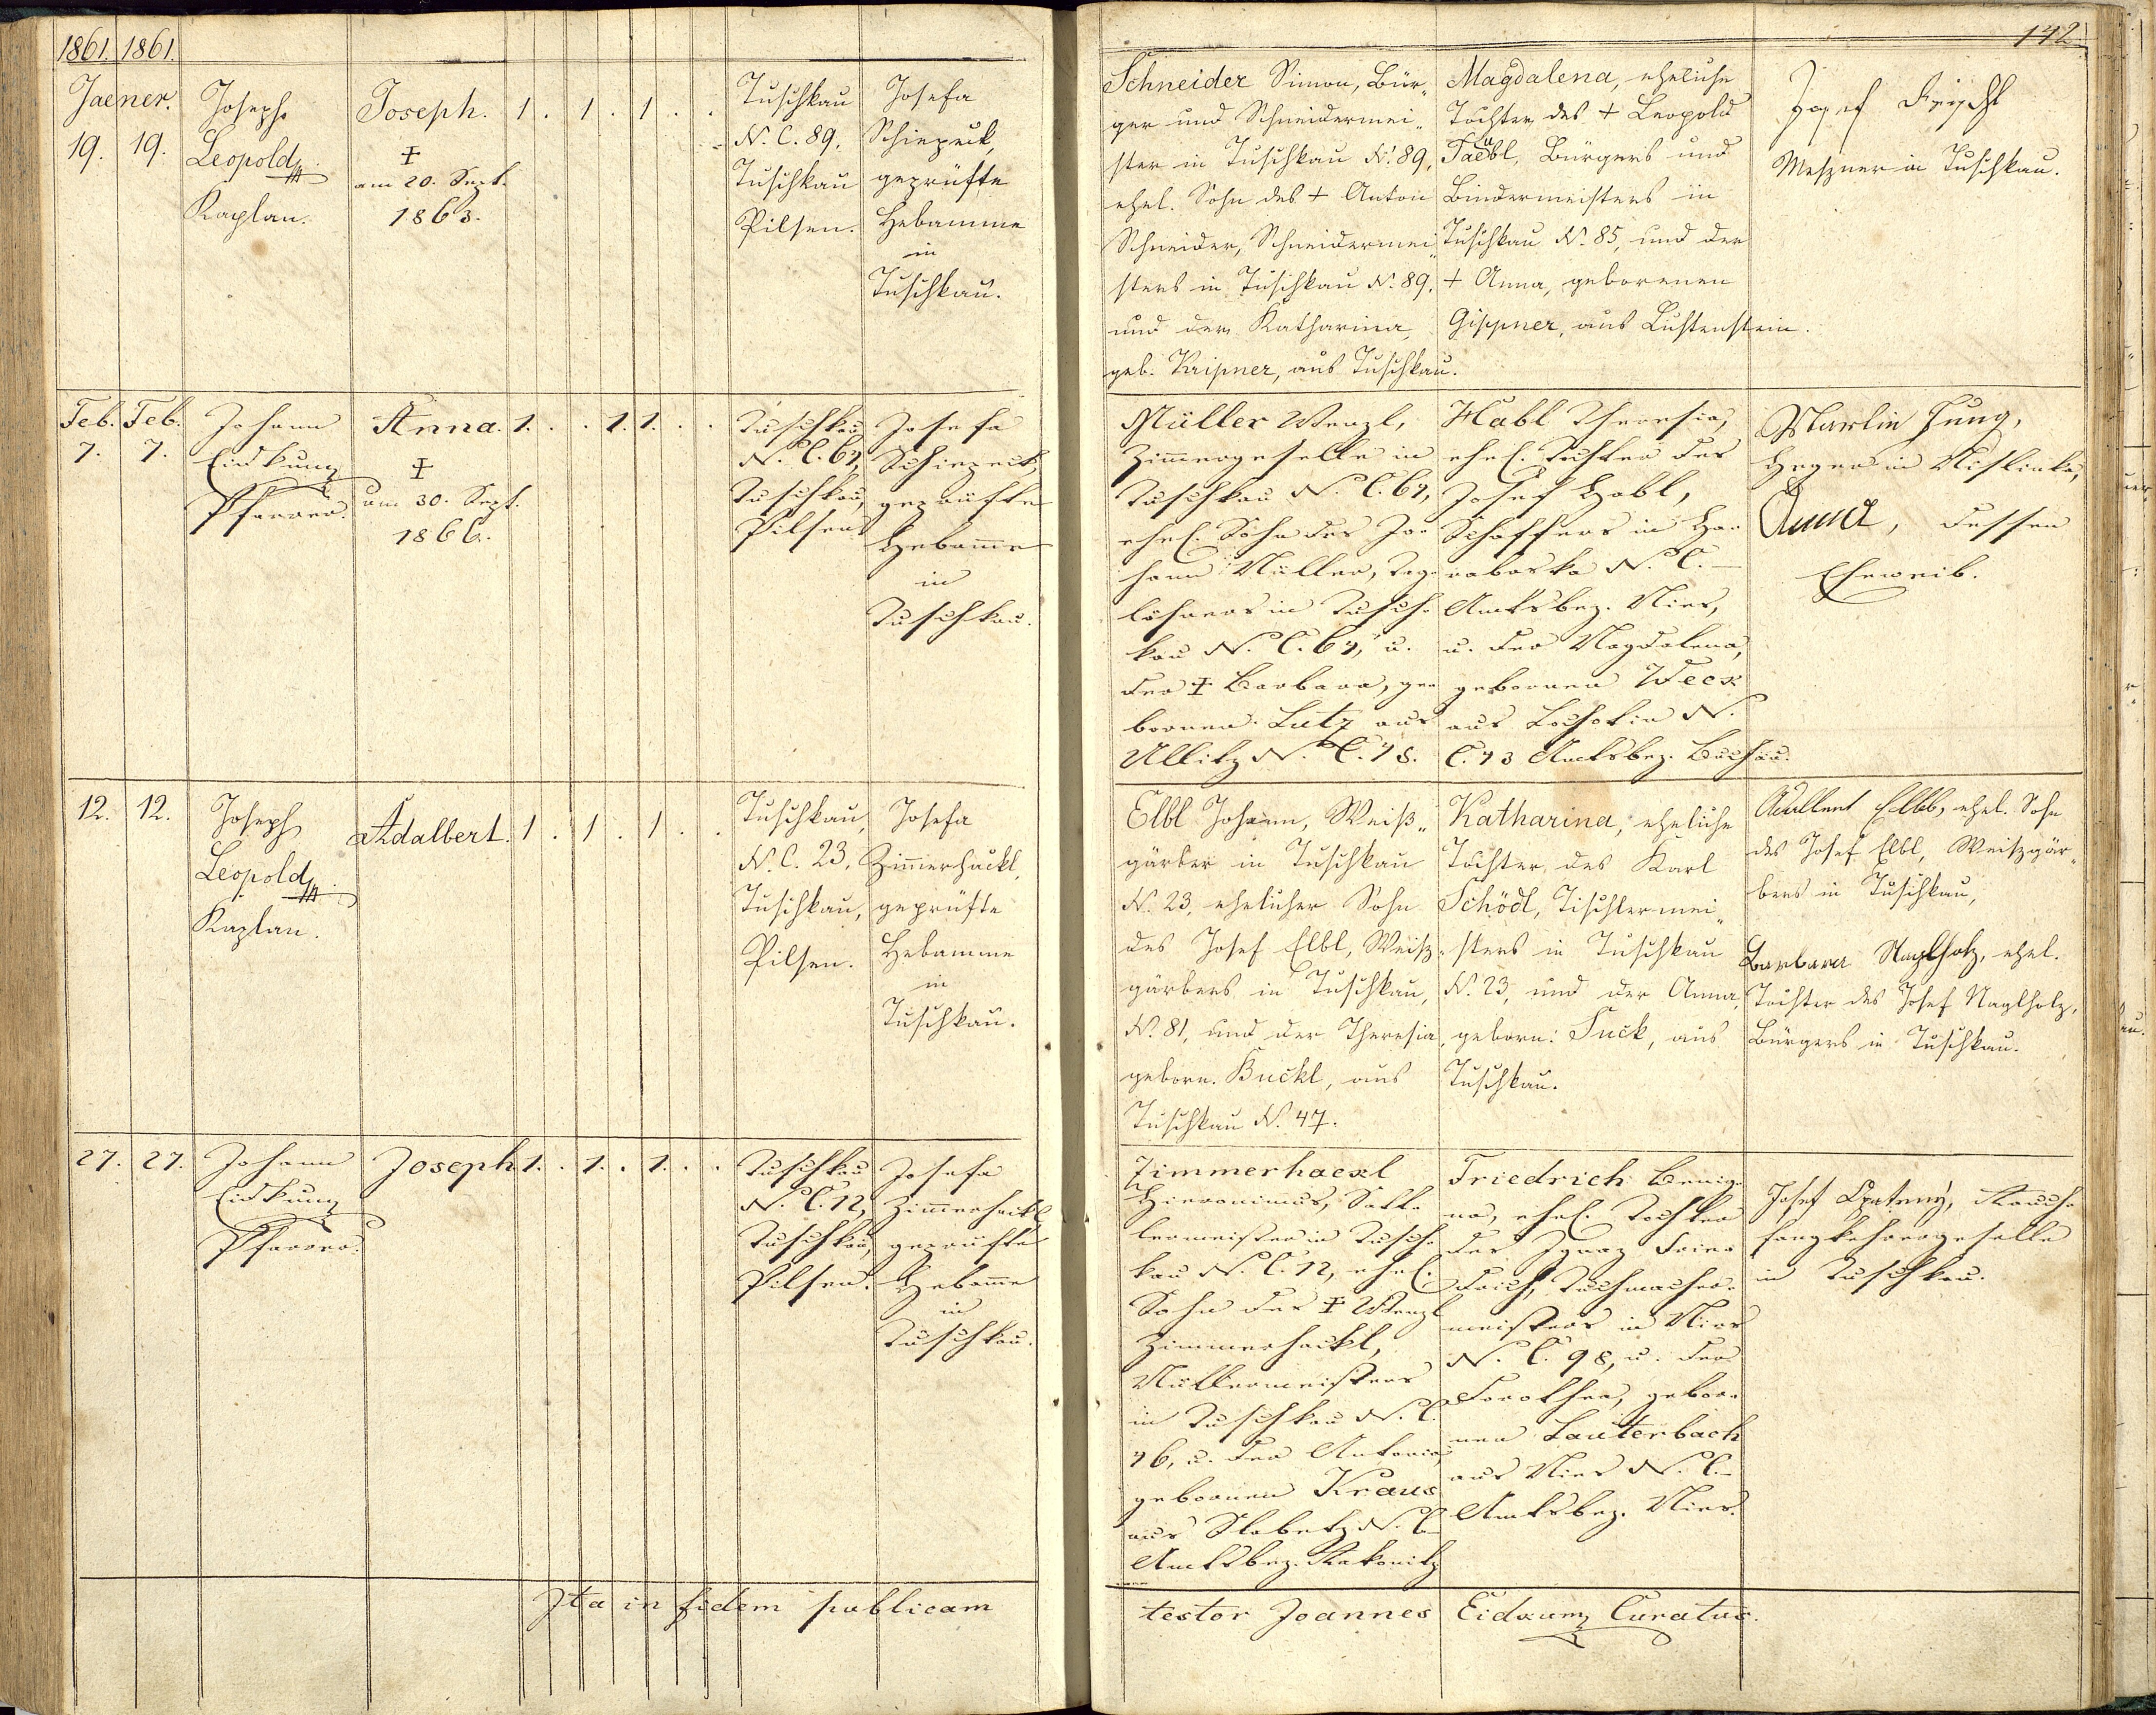 1861. 1861.
142
Jaener.
19. 19.
Joseph
Leopold
Kaplan.
Joseph. 1 . 1 . 1 . .
✝
am 20. Sept.
1863.
Tuschkau
N. C. 89.
Tuschkau
Pilsen.
Josefa
Schiepeck,
geprüfte
Hebamme
in
Tuschkau.
Schneider Simon, Bür„
ger und Schneidermei„
ster in Tuschkau N. 89,
ehel. Sohn des + Anton
Schneider, Schneidermei„
sters in Tuschkau N. 89.
und der Katharina,
geb. Kripner, aus Tuschkau.
Magdalena, eheliche
Tochter des + Leopold
Bürgers und
Bindermeisters in
Tuschkau N. 85, und der
+ Anna, geborenen
Gippner, aus
Josef
Meszner in Tuschkau.
Feb. Feb.
7. 7.
Johann
Eidkumz
Pfarrer.
Anna. 1. . . 1. 1. . .
✝
am 30. Sept.
1866.
Tuschkau
N. C. 67,
Tuschkau,
Pilsen
Josefa
Schiepeck,
geprüfte
Hebamme
in
Tuschkau.
Müller Wenzl,
Zimmergeselle in
Tuschkau N. C. 67,
ehel. Sohn des Jo-
hann Müller, Tag-
löhners in Tusch-
kau N. C. 67, u.
der ✝ Barbara, ge-
bornen Lutz aus
Ullitz N. C. 78.
Habl Theresia,
ehel. Tochter des
Josef Habl,
Schaffers in
N. C. —
Amtsbez. Mies,
u. der Magdalena,
gebornen Week
aus N.
C. 73 Amtsbez.
Martin Jung,
Heger in
Anna, dessen
Eheweib.
12. 12.
Joseph
Leopold
Kaplan.
Adalbert. 1 . 1 . 1 . .
Tuschkau,
N. C. 23.
Tuschkau,
Pilsen.
Josefa
Zimmerhackl,
geprüfte
Hebamme
in
Tuschkau.
Elbl Johann, Weiß„
gärber in Tuschkau
N. 23, ehelicher Sohn
des Josef Elbl, Weisz„
gärbers in Tuschkau,
N. 81, und der Theresia,
geborn. Buckl, aus
Tuschkau N. 47.
Katharina, eheliche
Tochter des Karl
Schödl, Tischlermei„
sters in Tuschkau
N. 23, und der Anna
geborn: Suck, aus
Tuschkau.
Elbl, ehel. Sohn
des Josef Elbl, Weiszgär„
bers in Tuschkau,
Barbara Naglholz, ehel.
Tochter des Josef Naglholz,
Bürgers in Tuschkau.
27. 27.
Johann
Eidkumz
Pfarrer.
Joseph 1. . 1. . 1. . .
Tuschkau
N. C. 12,
Tuschkau,
Pilsen.
Josefa
Zimmerhackl,
geprüfte
Hebamme
in
Tuschkau.
Zimmerhackl
Hieronimus, Satt-
lermeister in Tusch-
kau N. C. 12, ehel.
Sohn des ✝ Wenzl
Zimmerhackl,
Müllermeisters
in Tuschkau N. C.
76, u. der Antonia,
gebornen Kraus
aus Slabetz N. C.—
Amtsbez. Rakonitz
Friedrich Benig-
na, ehel. Tochter
des Ignaz Frie-
drich, Tuchmacher-
meisters in Mies
N. C. 98, u. der
Dorothea, gebor-
nen Lauterbach
aus Mies N. C.—
Amtsbez. Mies.
Josef Rauch-
fangkehrergeselle
in Tuschkau.
Ita in fidem publicam
testor Joannes Eidkumz Curatus.